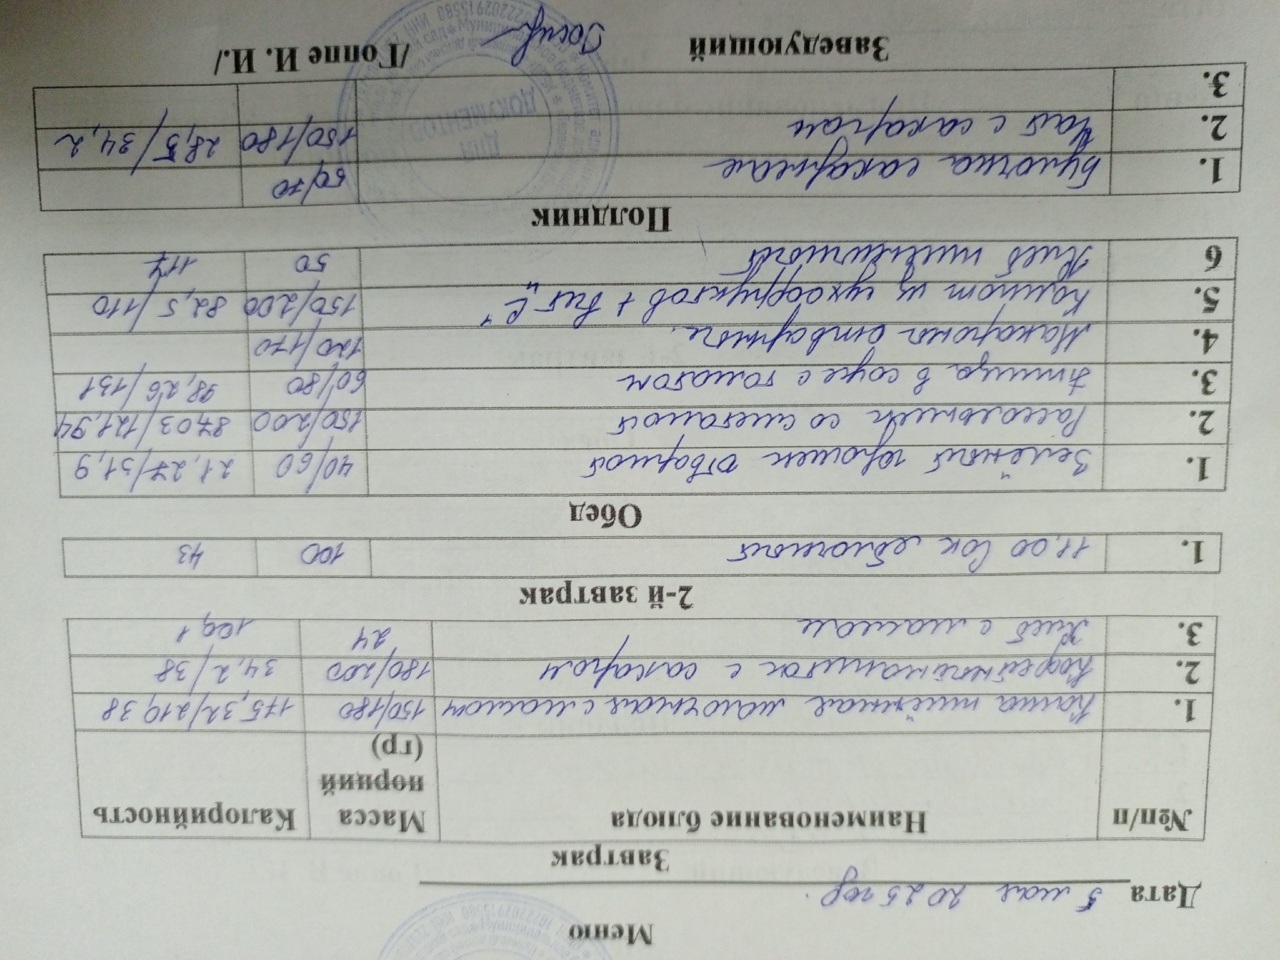 Меню
Дата 5 мая 2025 год.
Завтрак
№п/п Наименование блюда Масса порций (гр) Калорийность
1. Каша пшённая молочная с маслом 150/180 175,32/210,38
2. Кофейный напиток с сахаром 180/200 34,2/38
3. Хлеб с маслом 24
2-й завтрак
1. 11,00 Сок яблочный 100 43
Обед
1. Зелёный горошек отварной 40/60 21,27/31,9
2. Рассольник со сметаной 150/200 87,03/121,94
3. Птица в соусе с томатом 60/80 98,26/131
4. Макароны отварные. 120/170
5. Компот из сухофруктов + Вит „С" 150/200 82,5/110
6 Хлеб пшеничный 50 117
Полдник
1. Булочка сахарная 50/70
2. Чай с сахаром 150/180 28,5/34,2
3.
Заведующий /Гоппе И. И./
ДЛЯ ДОКУМЕНТОВ